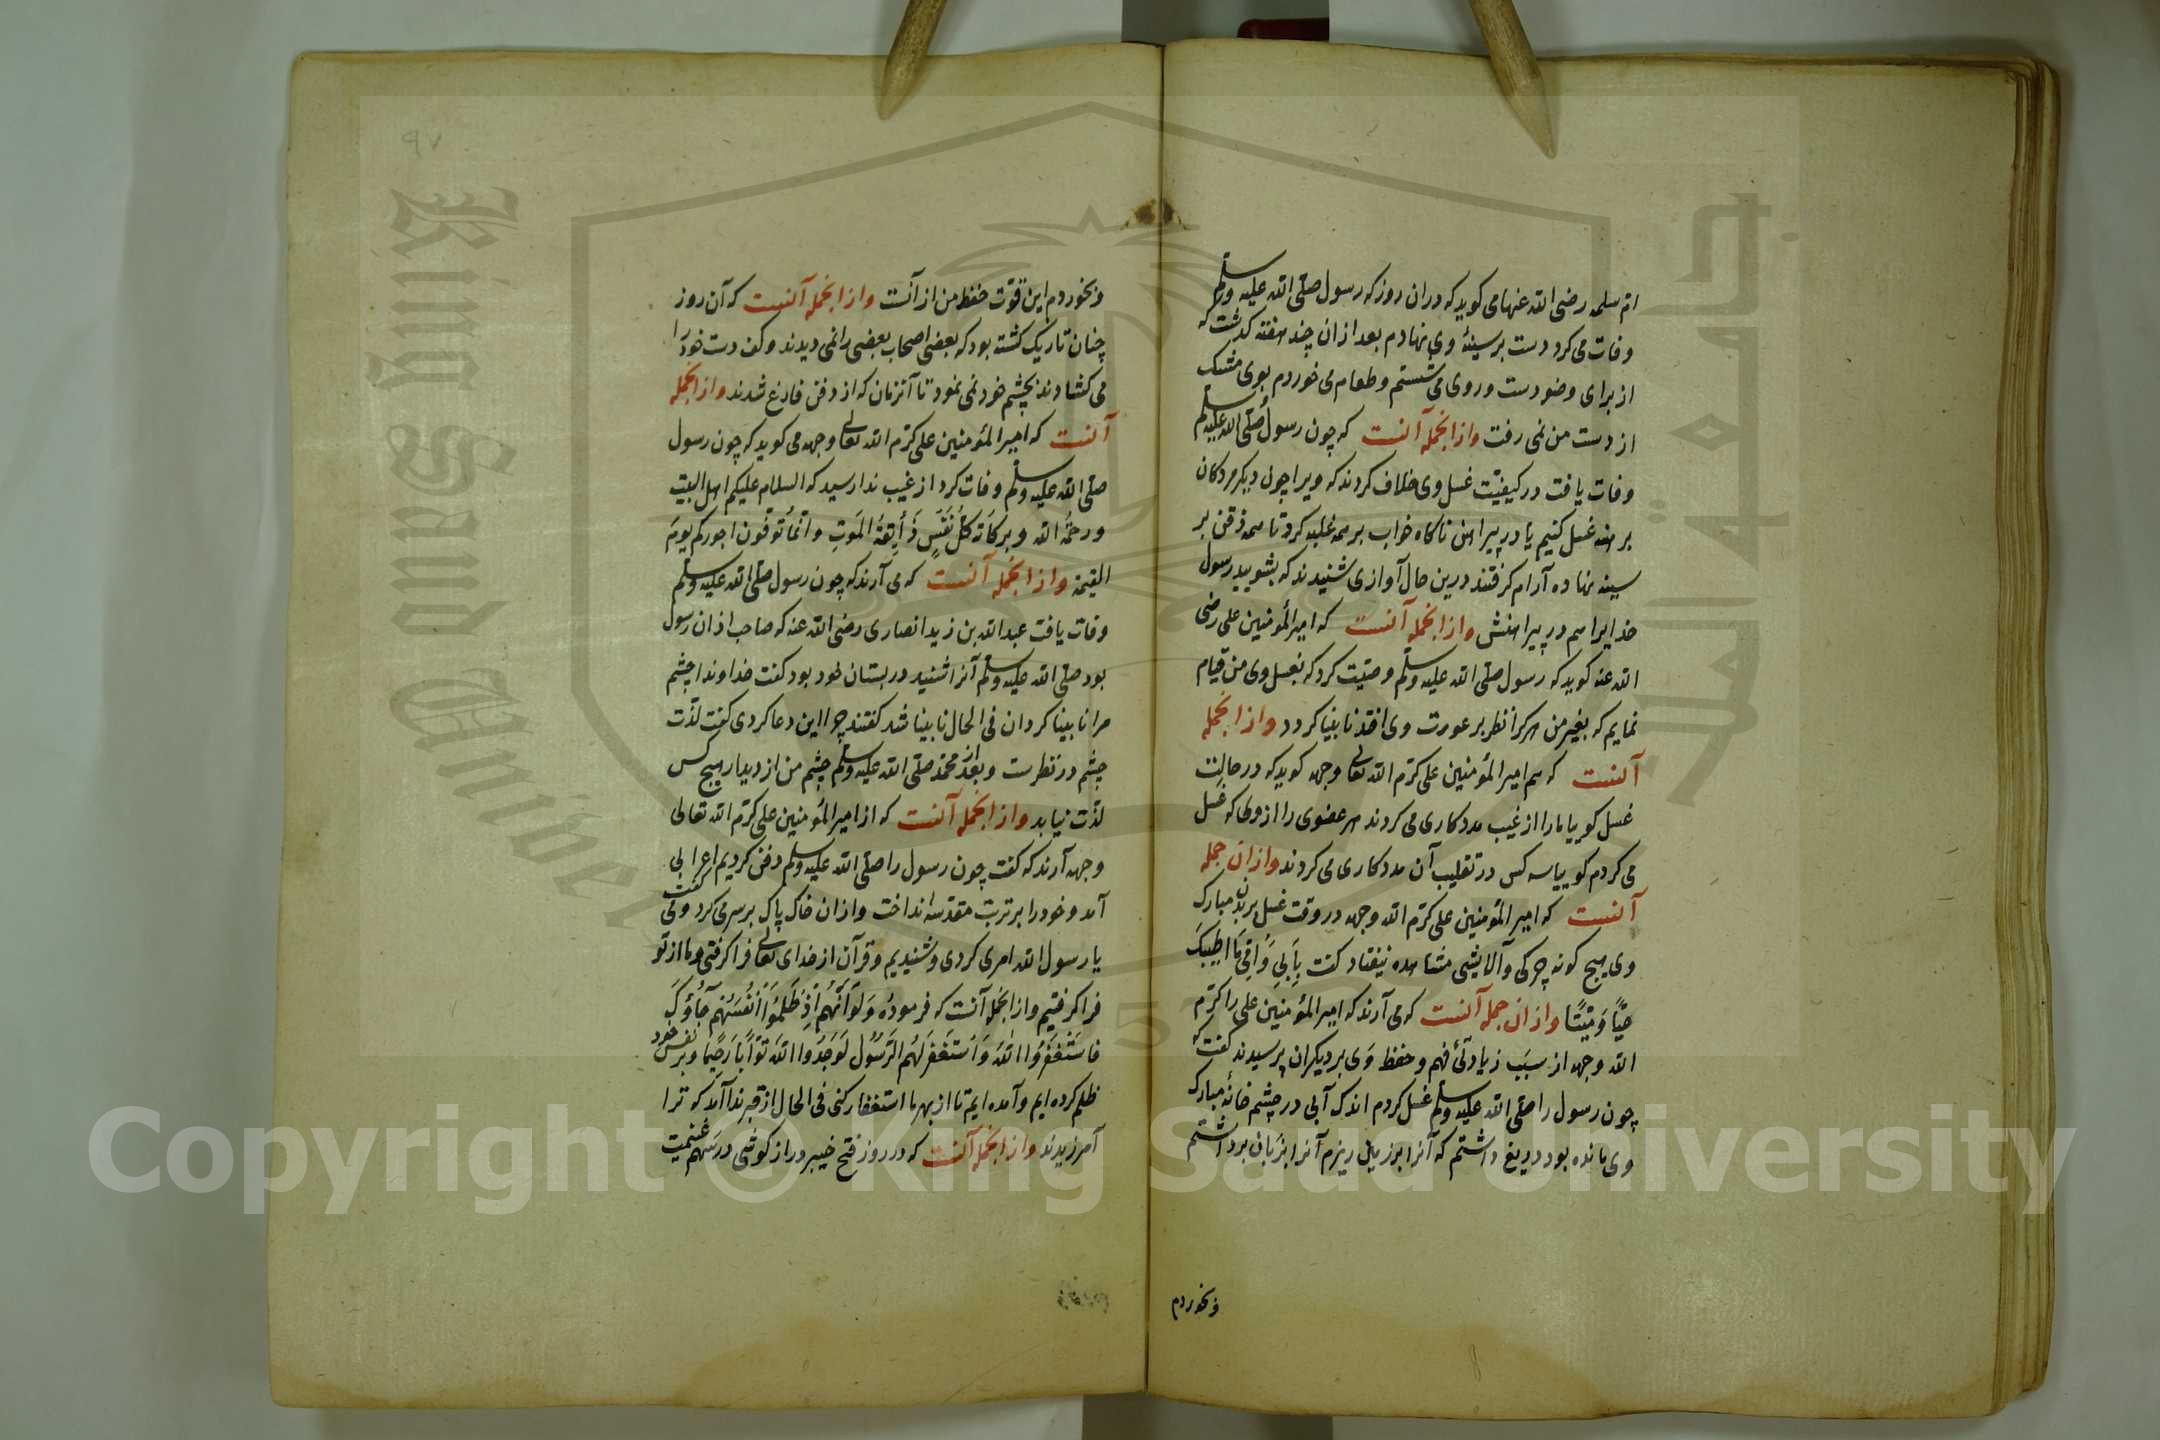 ام سلمه رضی الله عنها می کوید که دران روز که رسول صلی الله علیه وسلم
وفات می کرد دست بر سینهٔ وی نهادم بعد ازان چند هفته کذشت که
از برای وضو دست و روی می شستم و طعام می خوردم بوی مشک
از دست من نمی رفت وازانجمله آنست که چون رسول صلی الله علیه وسلم
وفات یافت در کیفیت غسل وی خلاف کردند که ویرا چون دیکر مردکان
برهنه غسل کنیم یا در پیراهن ناکاه خواب بر همه غلبه کرد تا همه ذقن بر
سینه نهاده آرام کرفتند درین حال آوازی شنیدند که بشویید رسول
خدایرا هم در پیراهنش وازانجمله آنست که امیر المؤمنین علی رضی
الله عنه کوید که رسول صلی الله علیه وسلم وصیت کرد که بغسل وی من قیام
نمایم که بغیر من هر کرا نظر بر عورت وی افتد نابینا کردد وازانجمله
آنست که هم امیر المؤمنین علی کرم الله تعالی وجهه کوید که در حالت
غسل کویا مارا از غیب مددکاری می کردند هر عضوی را از وی که غسل
می کردم کوییا سه کس در تقلیب آن مددکاری می کردند وازان جمله
آنست که امیر المؤمنین علی کرم الله وجهه در وقت غسل بر بدن مبارک
وی هیچ کونه چرکی و آلایشی مشاهده نیفتاد کفت بأبی وأمی ما اطیبک
حیًّا ومیتًا وازان جمله آنست که می آرند که امیر المؤمنین علی را کرم
الله وجهه از سبب زیادتئ فهم و حفظ وی بر دیکران پرسیدند کفت که
چون رسول را صلی الله علیه وسلم غسل کردم اندک آبی در چشم خانهٔ مبارک
وی مانده بود دریغ داشتم که آنرا بر زمین ریزم آنرا بزبان برداشتم
وبخوردم
٩٧
وبخوردم این قوت حفظ من از آنست وازانجمله آنست که آن روز
چنان تاریک کشته بود که بعضی اصحاب بعضی را نمی دیدند و کف دست خود را
می کشادند بچشم خود نمی نمود تا آنزمان که از دفن فارغ شدند وازانجمله
آنست که امیر المؤمنین علی کرم الله تعالی وجهه می کوید که چون رسول
صلی الله علیه وسلم وفات کرد از غیب ندا رسید که السلام علیکم اهل البیت
ورحمة الله وبرکاته کل نفس ذائقة الموت وانما توفون اجورکم یوم
القیمة وازانجمله آنست که می آرند که چون رسول صلی الله علیه وسلم
وفات یافت عبد الله بن زید انصاری رضی الله عنه که صاحب اذان رسول
بود صلی الله علیه وسلم آنرا شنید در بستان خود بود کفت خداوندا چشم
مرا نابینا کردان فی الحال نابینا شد کفتند چرا این دعا کردی کفت لذت
چشم در نظرست و بعد از محمد صلی الله علیه وسلم چشم من از دیدار هیچ کس
لذت نیابد وازانجمله آنست که از امیر المؤمنین علی کرم الله تعالی
وجهه آرند که کفت چون رسول را صلی الله علیه وسلم دفن کردیم اعرابی
آمد و خود را بر تربت مقدسه انداخت و ازان خاک پاک بر سر می کرد و می کفت
یا رسول الله امری کردی و شنیدیم و قرآن از خدای تعالی فرا کرفتی و ما از تو
فرا کرفتیم وازانجمله آنست که فرموده ولو أنهم اذ ظلموا أنفسهم جاؤک
فاستغفروا الله واستغفر لهم الرسول لوجدوا الله توابا رحیما و بر نفس خود
ظلم کرده ایم و آمده ایم تا از بهر ما استغفار کنی فی الحال از قبر ندا آمد که ترا
آمرزیدند وازانجمله آنست که در روز فتح خیبر دراز کوشی در سهم غنیمت
Copyright © King Saud University